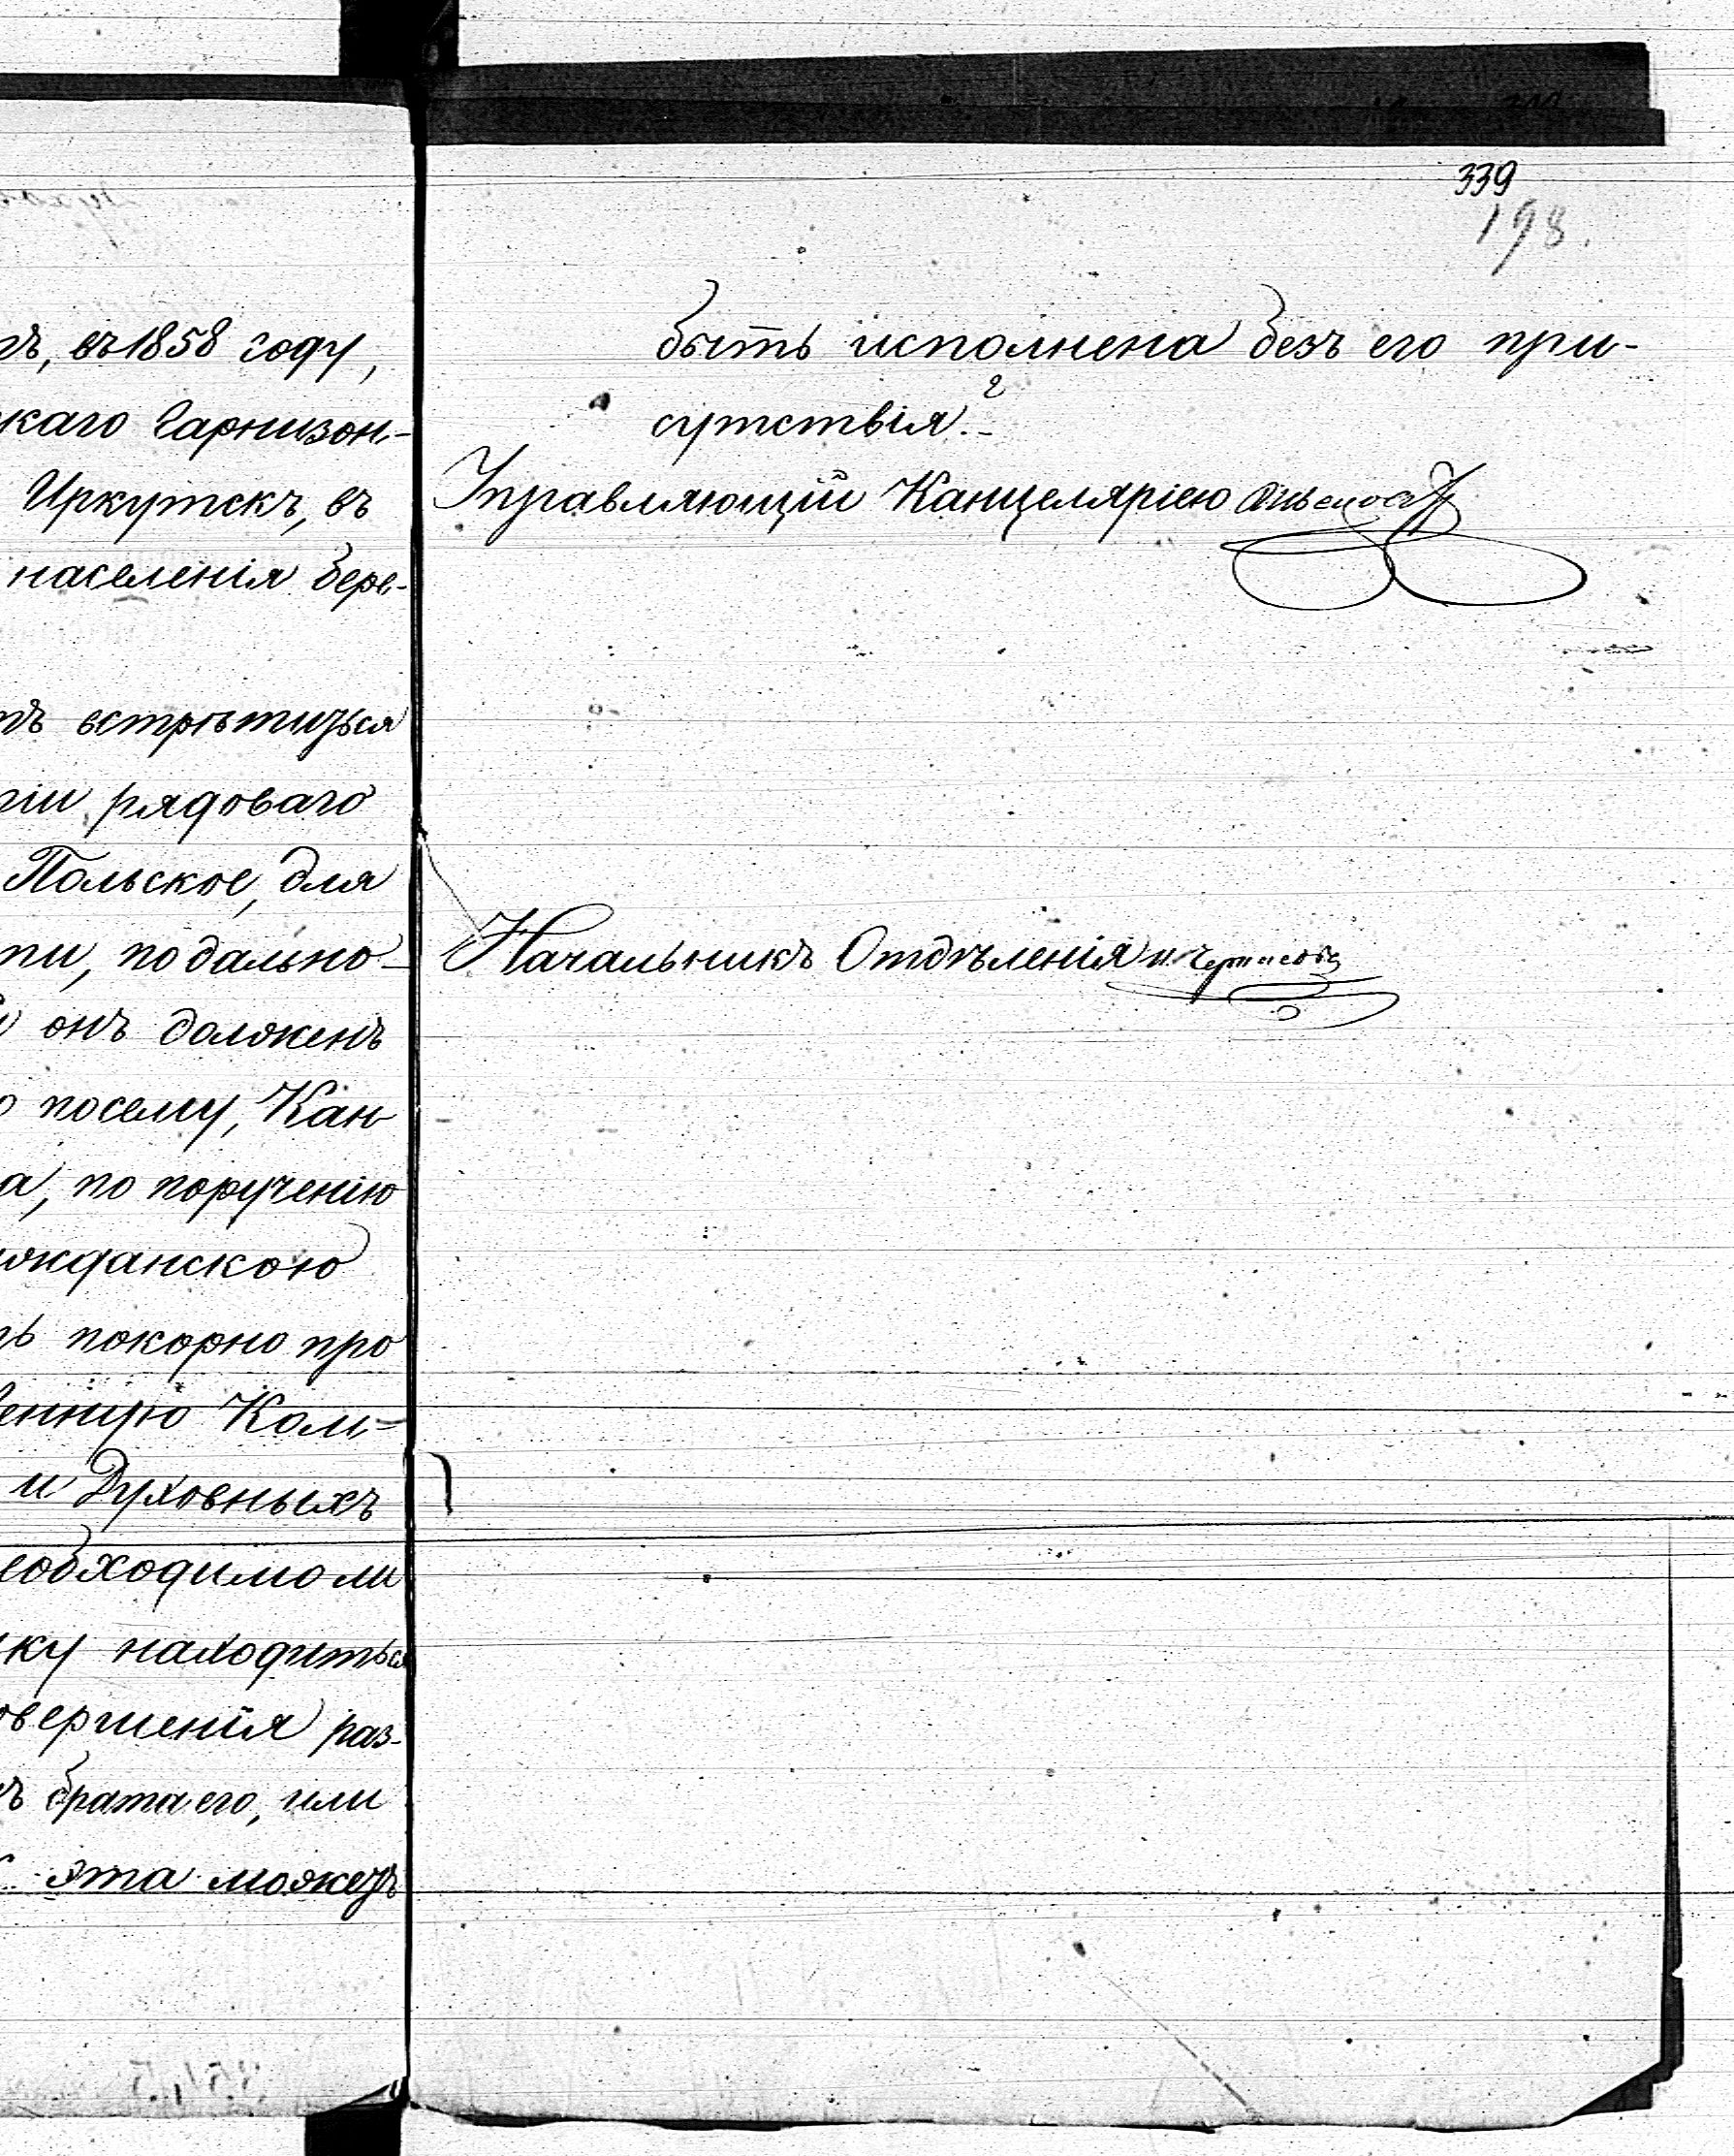 тъ, въ 1858 году,
каго Гарнизон-
Иркутскъ, въ
населенія бере-
встрѣтиться
рядоваго
Польское, для
по дально-
онъ долженъ
посему, Кан
а, по порученію
жданскою
покорно про
венную Ком-
и Духовныхъ
еобходимо ли
ку находиться
овершенія раз-
брата его, или
эта можетъ
339
198.
быть исполнена безъ его при-
сутствія?
Управляющій Канцеляріею
Начальникъ Отдѣленія